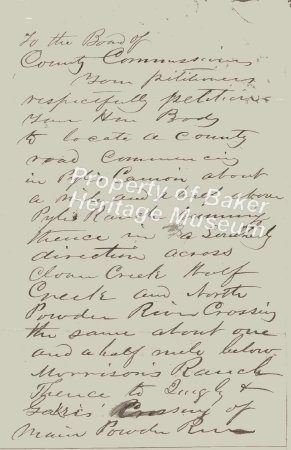 To the Board of
County Commissioners
Your petitioners
respectfully petition
your Hon Body
to locate a County
road Commencing
in Pyles Cannon about
a mile and a half above
Pyles Ranch running
thence in a Southerly
direction across
Cloan Creek Wolf
Creek and North
Powder River Crossing
the same about one
and a half mile below
Morrisons Ranch
Thence to &
Crossing of
main Powder River
Property of Baker
Heritage Museum